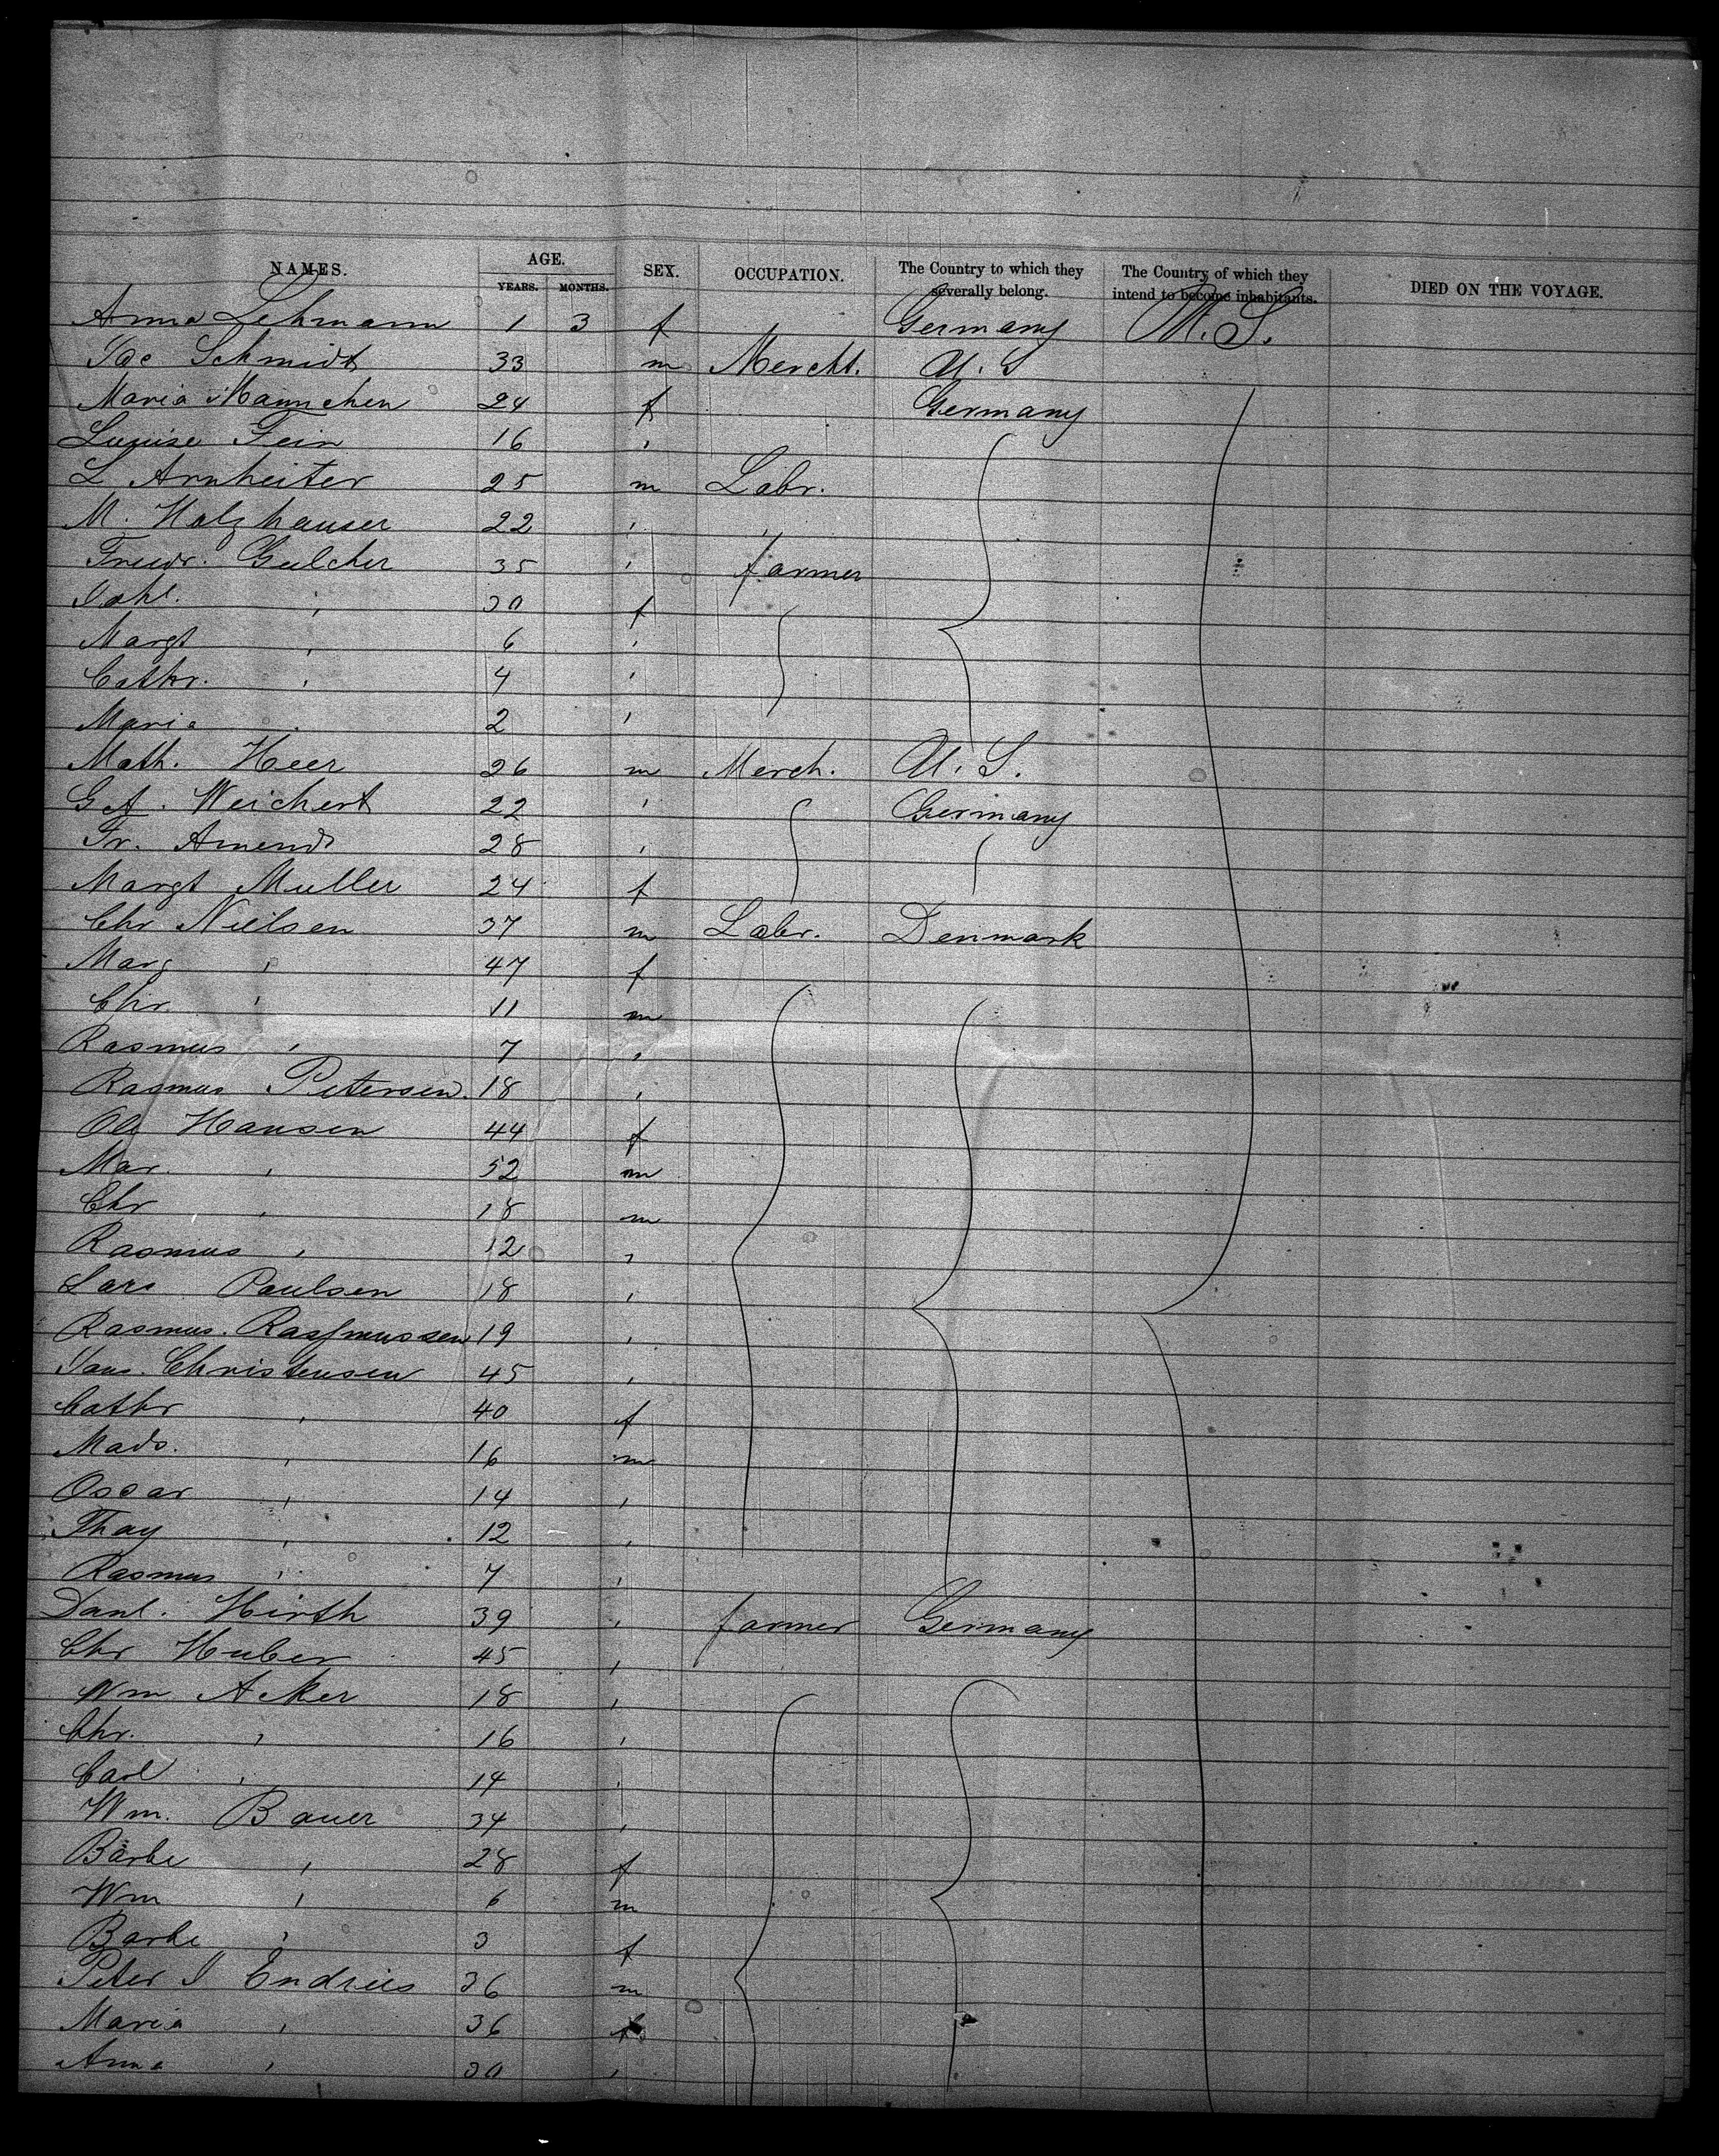 NAMES. AGE. YEARS. MONTHS. SEX. OCCUPATION. The Country to which they severally belong. The Country of which they intend to become inhabitants. DIED ON THE VOYAGE.
Anna Lehmann 1 3 f Germany U. S.
Jac Schmidt 33 m Mercht. U. S
Maria Mannchen 24 f Germany
Louise Fein 16 "
L Arnheiter 25 m Labr.
M. Holzhauser 22 " "
Friedr. Gulcher 35 " farmer
" 30 f
Margt " 6 "
Cathr. " 4 "
Maria " 2 "
Math. Heer 26 m Merch. U. S.
Weichert 22 " Germany
Fr. Amend 28 "
Margt Muller 24 f
Chr Nielsen 37 m Labr. Denmark
Marg " 47 f
Chr. " 11 m
Rasmus " 7 "
Rasmus Petersen. 18 "
Ole Hansen 44 f
Mar. " 52 m
Chr " 18 m
Rasmus " 12 "
Lars Paulsen 18 "
Rasmus. Rasmussen 19 "
Christensen 45 "
Cathr " 40 f
Mads. " 16 m
Oscar " 14 "
Thay " 12 "
Rasmus " 7 "
Danl. Hirth 39 " farmer Germany
Chr Huber 45 "
Wm Acker 18 "
Chr. " 16 "
Carl " 14 "
Wm. Bauer 34 "
Barbe " 28 f
Wm " 6 m
Barbe " 3 f
Peter J Endries 36 m
Maria " 36 f
Anna " 30 "